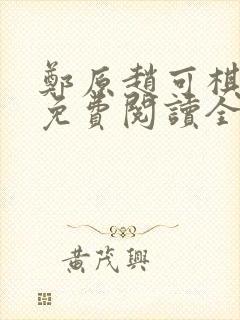 鄭原趙可棋
免費閱讀全
黃茂興